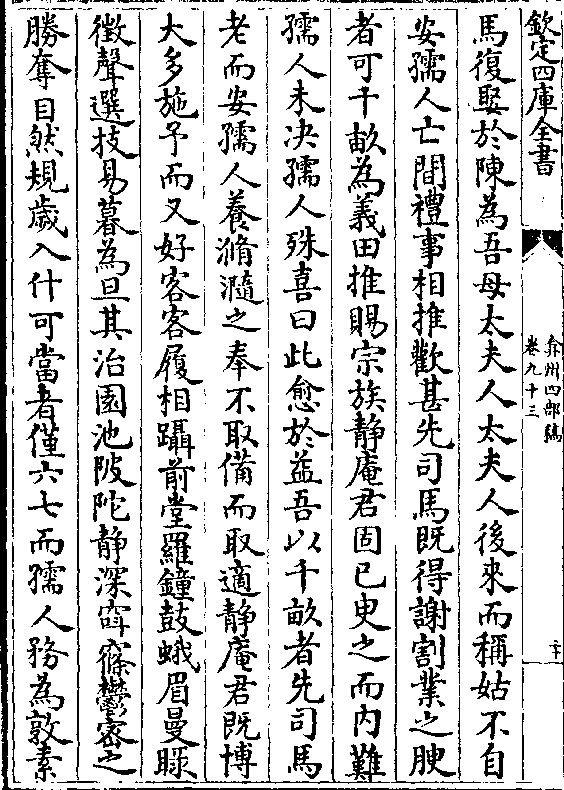 欽定四庫全書
弇州四部稿
卷九十三
二十
馬復娶於陳為吾母太夫人太夫人後來而稱姑不自
安孺人亡間禮事相推歡甚先司馬既得謝割業之腴
者可千畝為義田推賜宗族静庵君固已㕜之而内難
孺人未决孺人殊喜曰此愈於益吾以千畝者先司馬
老而安孺人養滫瀡之奉不取備而取適静庵君既博
大多施予而又好客客履相躡前堂羅鐘鼓蛾眉曼睩
徴聲選技易暮為旦其治園池陂陀静深窅窱鬱密之
勝奪目然規歲入什可當者僅六七而孺人務為敦素